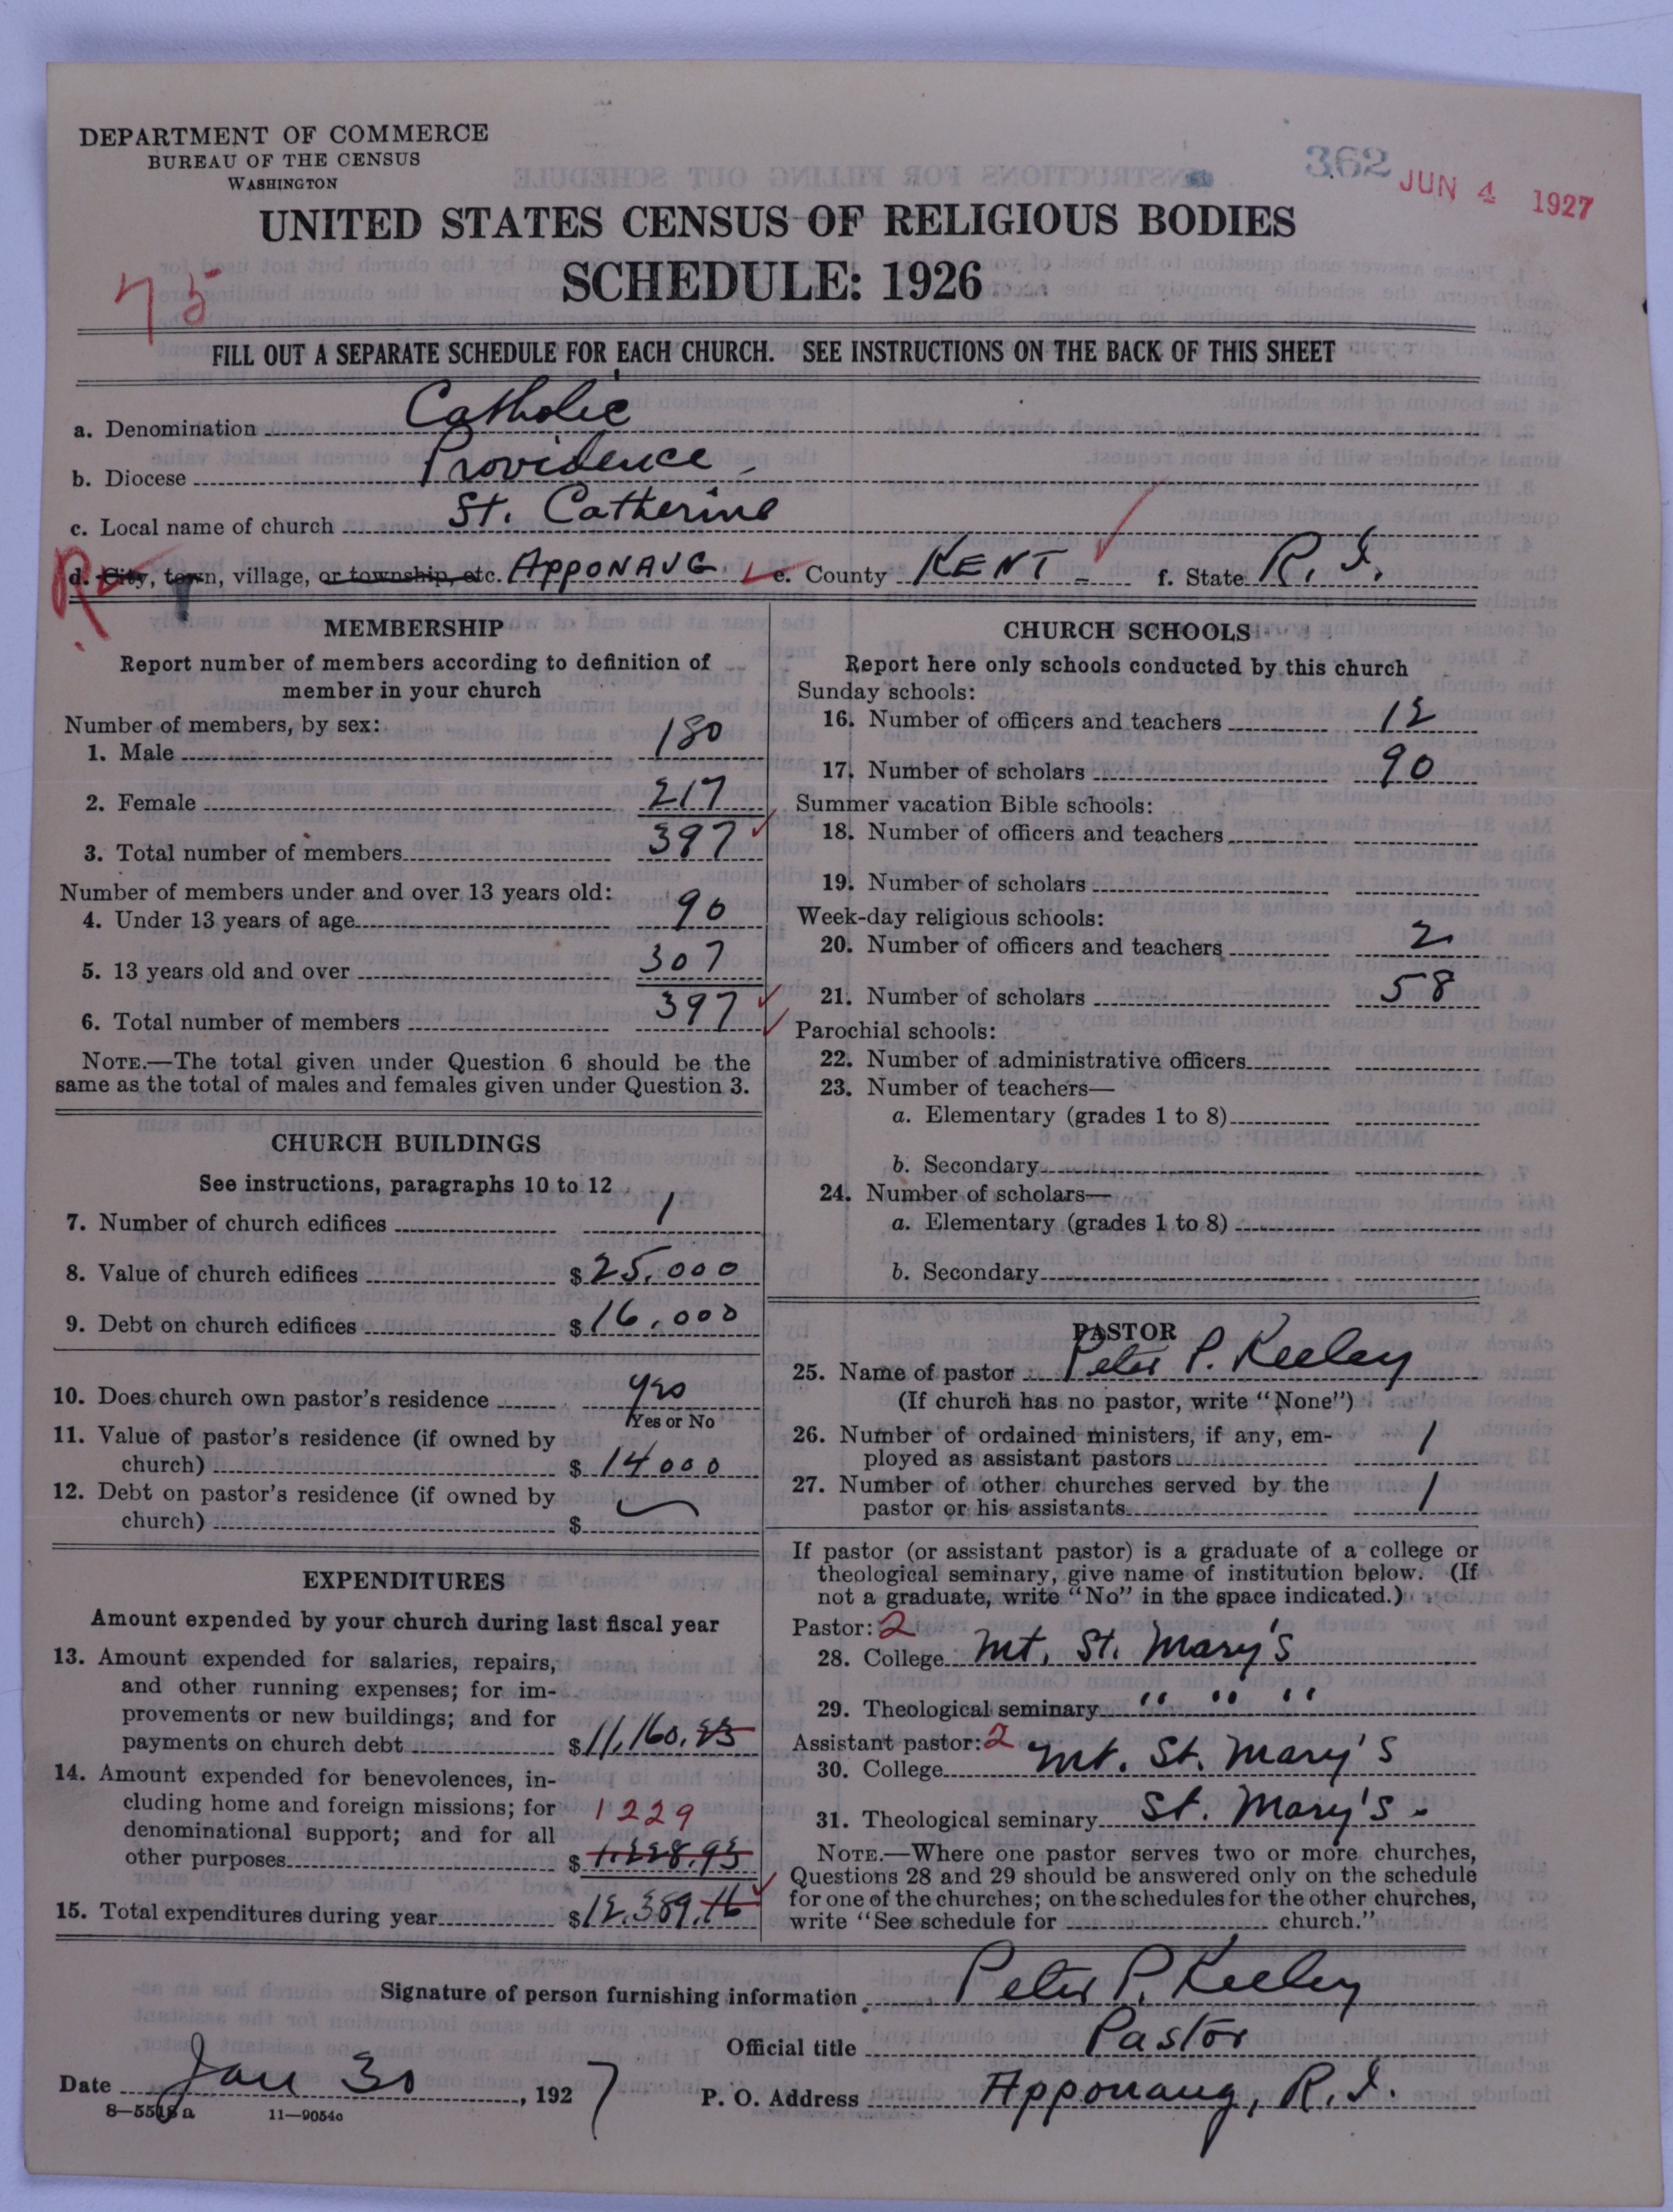 DEPARTMENT OF COMMERCE
BUREAU OF THE CENSUS
WASHINGTON
362
JUN 4 1927
UNITED STATES CENSUS OF RELIGIOUS BODIES
SCHEDULE: 1926
75
FILL OUT A SEPARATE SCHEDULE FOR EACH CHURCH. SEE INSTRUCTIONS ON THE BACK OF THIS SHEET
a. Denomination Catholic
b. Diocese Providence
c. Local name of church St. Catherine
d. City, town, village, or township, etc. APPONAUG e. County KENT f. State R. I.
MEMBERSHIP
Report number of members according to definition of
member in your church
Number of members, by sex:
1. Male 180
2. Female 217
3. Total number of members 397
Number of members under and over 13 years old:
4. Under 13 years of age 90
5. 13 years old and over 307
6. Total number of members 397
NOTE.—The total given under Question 6 should be the
same as the total of males and females given under Question 3.
CHURCH BUILDINGS
See instructions, paragraphs 10 to 12
7. Number of church edifices 1
8. Value of church edifices $25,000
9. Debt on church edifices $16,000
10. Does church own pastor's residence yes
Yes or No
11. Value of pastor's residence (if owned by
church) $14000
12. Debt on pastor's residence (if owned by
church) $
EXPENDITURES
Amount expended by your church during last fiscal year
13. Amount expended for salaries, repairs,
and other running expenses; for im-
provements or new buildings; and for
payments on church debt $11,160.23
14. Amount expended for benevolences, in-
cluding home and foreign missions; for 1229
denominational support; and for all
other purposes $1,228.93
15. Total expenditures during year $12,389.16
CHURCH SCHOOLS
Report here only schools conducted by this church
Sunday schools:
16. Number of officers and teachers 12
17. Number of scholars 90
Summer vacation Bible schools:
18. Number of officers and teachers
19. Number of scholars
Week-day religious schools:
20. Number of officers and teachers 2
21. Number of scholars 58
Parochial schools:
22. Number of administrative officers
23. Number of teachers—
a. Elementary (grades 1 to 8)
b. Secondary
24. Number of scholars—
a. Elementary (grades 1 to 8)
b. Secondary
PASTOR
25. Name of pastor Peter P. Keeley
(If church has no pastor, write "None")
26. Number of ordained ministers, if any, em-
ployed as assistant pastors 1
27. Number of other churches served by the
pastor or his assistants 1
If pastor (or assistant pastor) is a graduate of a college or
theological seminary, give name of institution below. (If
not a graduate, write "No" in the space indicated.)
Pastor: 2
28. College Mt. St. Mary's
29. Theological seminary " " "
Assistant pastor: 2
30. College Mt. St. Mary's
31. Theological seminary St. Mary's.
NOTE.—Where one pastor serves two or more churches,
Questions 28 and 29 should be answered only on the schedule
for one of the churches; on the schedules for the other churches,
write "See schedule for church."
Signature of person furnishing information Peter P. Keeley
Official title Pastor
Date Jan 30, 1927 P. O. Address Apponaug, R. I.
8—5518a 11—9054c